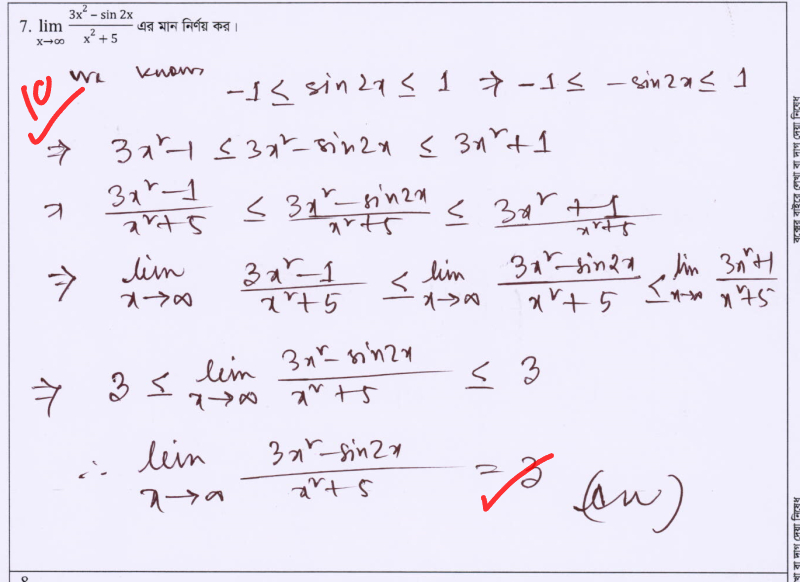 7. lim x→∞ (3x² − sin 2x)/(x² + 5) এর মান নির্ণয় কর।
10 We know -1 ≤ sin2x ≤ 1 ⇒ -1 ≤ -sin2x ≤ 1
⇒ 3x²-1 ≤ 3x²-sin2x ≤ 3x²+1
⇒ (3x²-1)/(x²+5) ≤ (3x²-sin2x)/(x²+5) ≤ (3x²+1)/(x²+5)
⇒ lim x→∞ (3x²-1)/(x²+5) ≤ lim x→∞ (3x²-sin2x)/(x²+5) ≤ lim x→∞ (3x²+1)/(x²+5)
⇒ 3 ≤ lim x→∞ (3x²-sin2x)/(x²+5) ≤ 3
∴ lim x→∞ (3x²-sin2x)/(x²+5) = 3 (An)
8
বক্সের বাইরে লেখা বা দাগ দেয়া নিষেধ
খা বা দাগ দেয়া নিষেধ